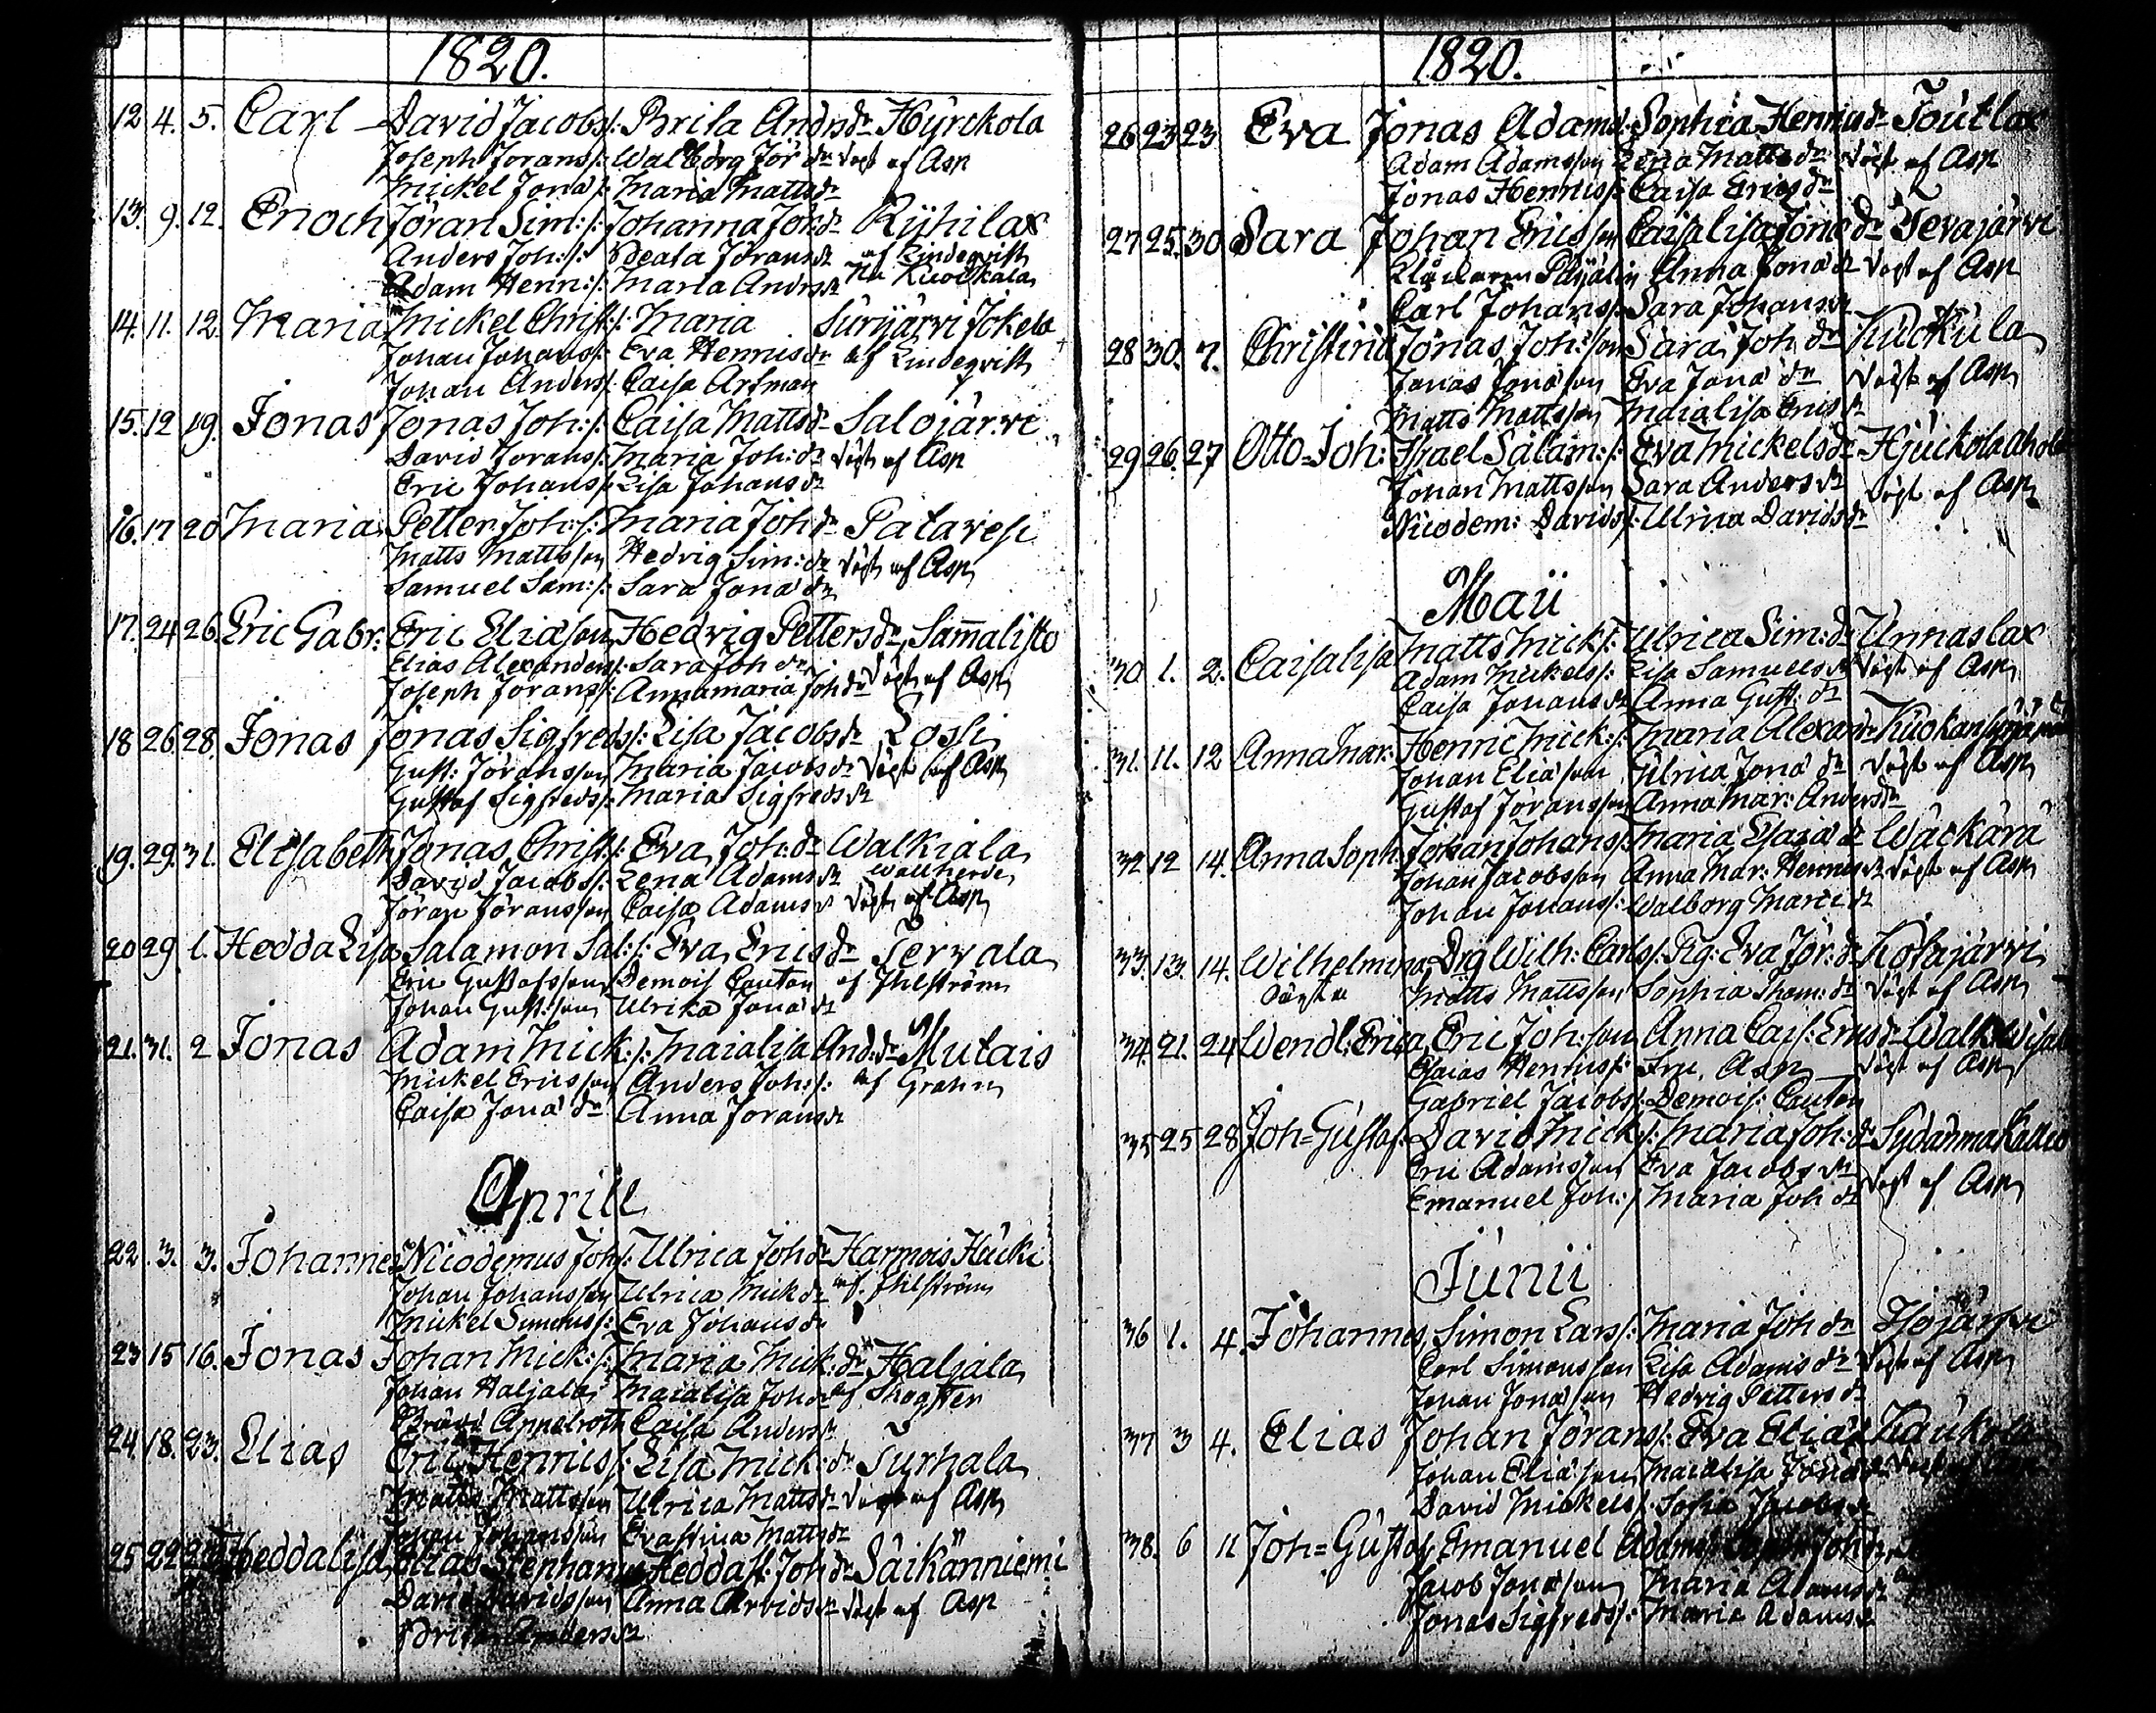 1820.
12 4. 5. Carl – David Jacobs/: Brita Andrsdr Hyrckola
Joseph Jörans/: Walborg Jör dr döpt af Asp
Mickel Jona/: Maria Mattsdr
13. 9. 12. Enoch Jöran Sim:/: Johanna Jör:dr Rijhilax
Anders Joh:/: Beata Jöransdr af Lindeqvist
Adam Henr:/: Maria Andrsdr
14. 11. 12. Maria Mickel Christ/: Maria Surijärvi Jokela
Johan Johans/: Eva Henricsdr af Lindeqvist
Johan Anders/: Caisa Artman
15. 12 19. Jonas Jonas Joh:/: Caisa Mattsdr Salojärvi
David Jörans/: Maria Joh:dr döpt af Asp
Eric Johans/: Lisa Johansdr
16. 17 20 Maria Petter Joh:/: Maria Johdr Patavesi
Matts Mattsson Hedvig Sim:dr döpt af Asp
Samuel Sam:/: Sara Jonadr
17. 24 26. Eric Gabr: Eric Eliasson Hedvig Pettersdr Sammalisto
Elias Alexanders/: Sara Joh dr
Joseph Jörans/: Annamaria Johdr döpt af Asp
18 26. 28. Jonas Jonas Sigfreds/: Lisa Jacobsdr Losti
Gust: Jöransson Maria Jacobsdr döpt af Asp
Gustaf Sigfreds/: Maria Sigfredsdr
19. 29. 31. Elisabeth Jonas Christ/: Eva Joh:dr Walkiala
David Jacobs/: Lena Adamsdr Wallherde
Jöran Jöransson Caisa Adamsdr döpt af Asp
20 29 1. Hedda Lisa Salamon Sal:/: Eva Ericsdr Tervala
Eric Gustafsson Demois Cauton af Ihlström
Johan Gust:son Ulrika Jonadr
21. 31. 2 Jonas Adam Mick:/: Maialisa And:dr Mutais
Mickel Ericsson Anders Joh:/: af Grahn
Caisa Jona dr Anna Jöransdr
Aprill
22. 3. 3. Johannes Nicodemus Joh/: Ulrica Johdr Harmois Hucki
Johan Johansson Ulrica Mickdr af Ihlström
Mickel Simons/: Eva Johansdr
23 15 16. Jonas Johan Mick:/: Maria Mick:dr Haljala
Johan Haljala Maialisa Johdr af Skogster
Appelroth Caisa Andersdr
24. 18. 23. Elias Eric Henrics/: Lisa Mick:dr Turhala
Matts Mattsson Ulrica Mattsdr döpt af Asp
Johan Johansson Evastina Mattsdr
25 22 Heddalisa Stephans/: Heddast: Johdr Säikänniemi
David Davidsson Anna Arvidsdr döpt af Asp
Brita Andersdr
1820.
26 23 23 Eva Jonas Adams/: Sophia Henricsdr Toutlax
Adam Adamsson Lena Mattsdr döpt af Asp
Jonas Henrics/: Caisa Ericsdr
27 25. 30 Sara Johan Ericsson Caisalisa Jonadr Tevajärvi
Klåckaren Päijälin Anna Jonadr döpt af Asp
Carl Johans/: Sara Johansdr
28 30. 7. Christina Jonas Joh:son Sara Joh dr Kuckula
Jonas Jonason Eva Jona dr döpt af Asp
Matts Mattsson Maialisa Ericsdr
29 26. 27 Otto=Joh: Israel Salam:/: Eva Mickelsdr Hjuckola Ahola
Johan Mattsson Sara Andersdr döpt af Asp
Nicodem: Davids/: Ulrica Davidsdr
Maii
30 1. 2. Caisalisa Matts Mick/: Ulrica Sim:dr Unnaslax
Adam Mickels/: Lisa Samuelsdr döpt af Asp
Caisa Johansdr Anna Gust: dr
31. 11. 12 Anna Mar: Henric Mick:/: Maria Alexandr
Johan Eliason Ulrica Jona dr döpt af Asp
Gustaf Jöransson Anna Mar: Andersdr
32 12 14. Anna Soph: Johan Johans/: Maria Esaiadr Wäckärä
Johan Jacobsson Anna Mar: Henricsdr döpt af Asp
Johan Johans/: Walborg Marcidr
33. 13. 14. Wilhelmina Drg Wilh: Carls/: Pig: Eva Jör:dr Kotajärvi
oägta Matts Mattsson Sophia Thom:dr döpt af Asp
34. 21. 24 Wendl: Erica Eric Joh:son Anna Cais: Ericsdr Walk:
Esaias Henrics/: Fru Asp döpt af Asp
Gabriel Jacobs/: Demois: Cauton
35 25 28 Joh=Gustaf David Mick/: Maria Joh:dr Sydänmakallio
Eric Adamsson Eva Jacobsdr döpt af Asp
Emanuel Joh:/: Maria Joh dr
Junii
36 1. 4. Johannes Simon Lars/: Maria Joh dr Isojärvi
Carl Simonsson Lisa Adamsdr döpt af Asp
Johan Jonason Hedvig Pettersdr
37 3 4. Elias Johan Jörans/: Eva Elias Kaukola
Johan Eliason Maialisa Jonadr
David Mickels/: Sofia Jacobsdr
38. 6 11 Joh=Gustaf Emanuel Adams/:
Jacob Jonason Maria Adamsdr
Jonas Sigfreds/: Maria Adamsdr